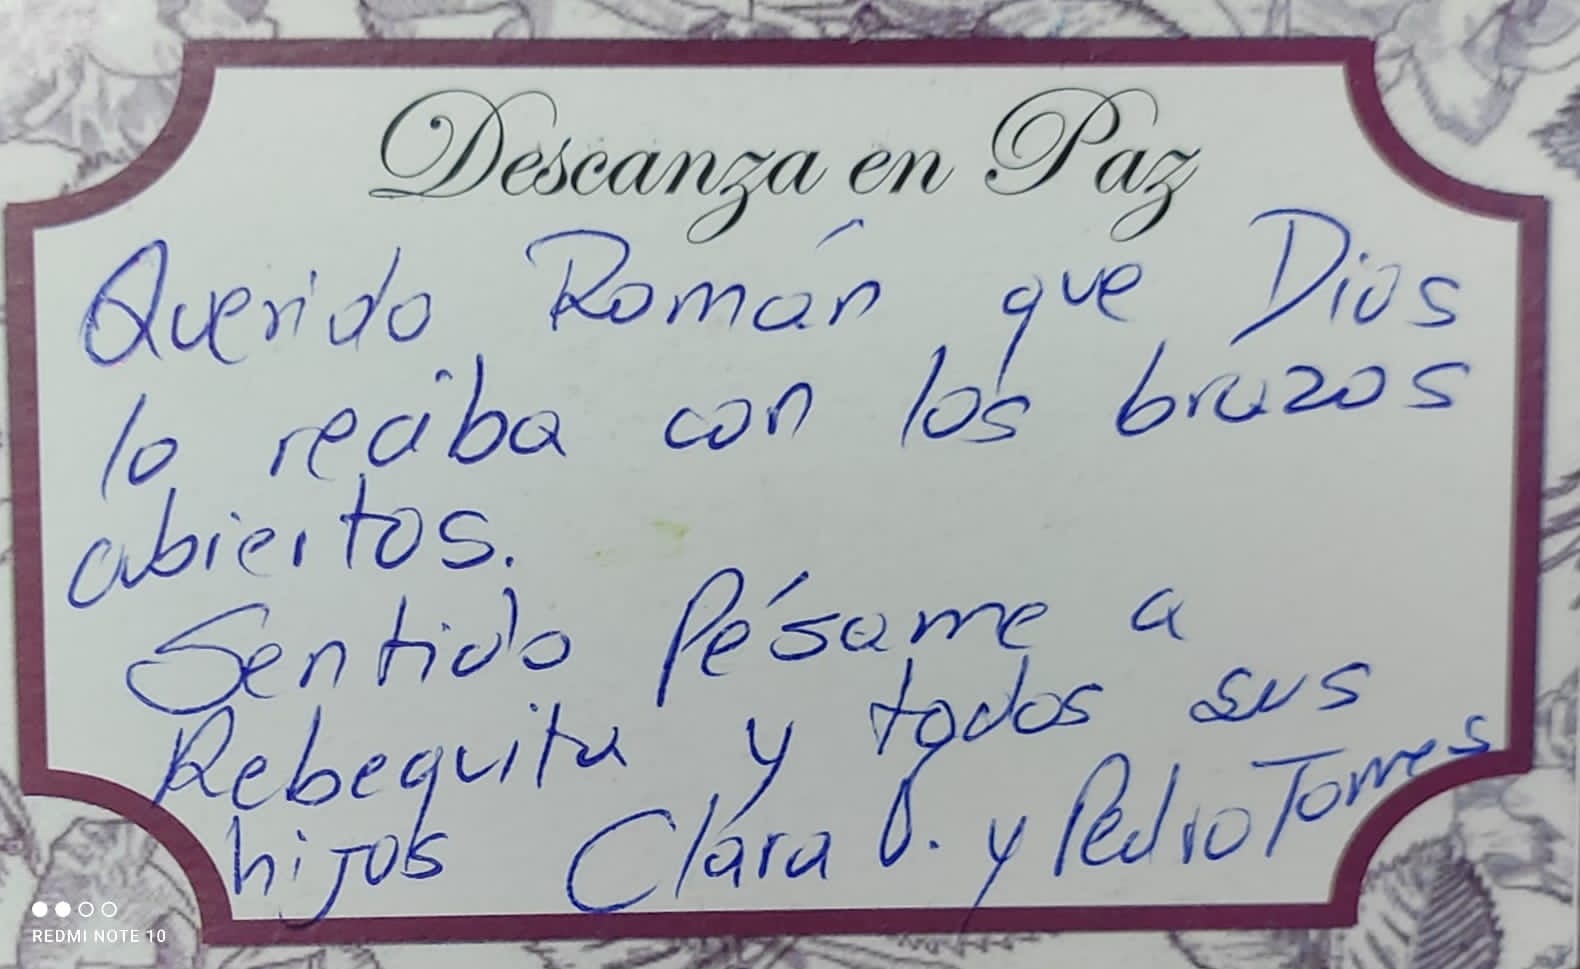 Descanza en Paz
Querido Román que Dios
lo reciba con los brazos
abiertos.
Sentido Pésame a
Rebequita y todos sus
hijos Clara O. y Pedro Torres
REDMI NOTE 10